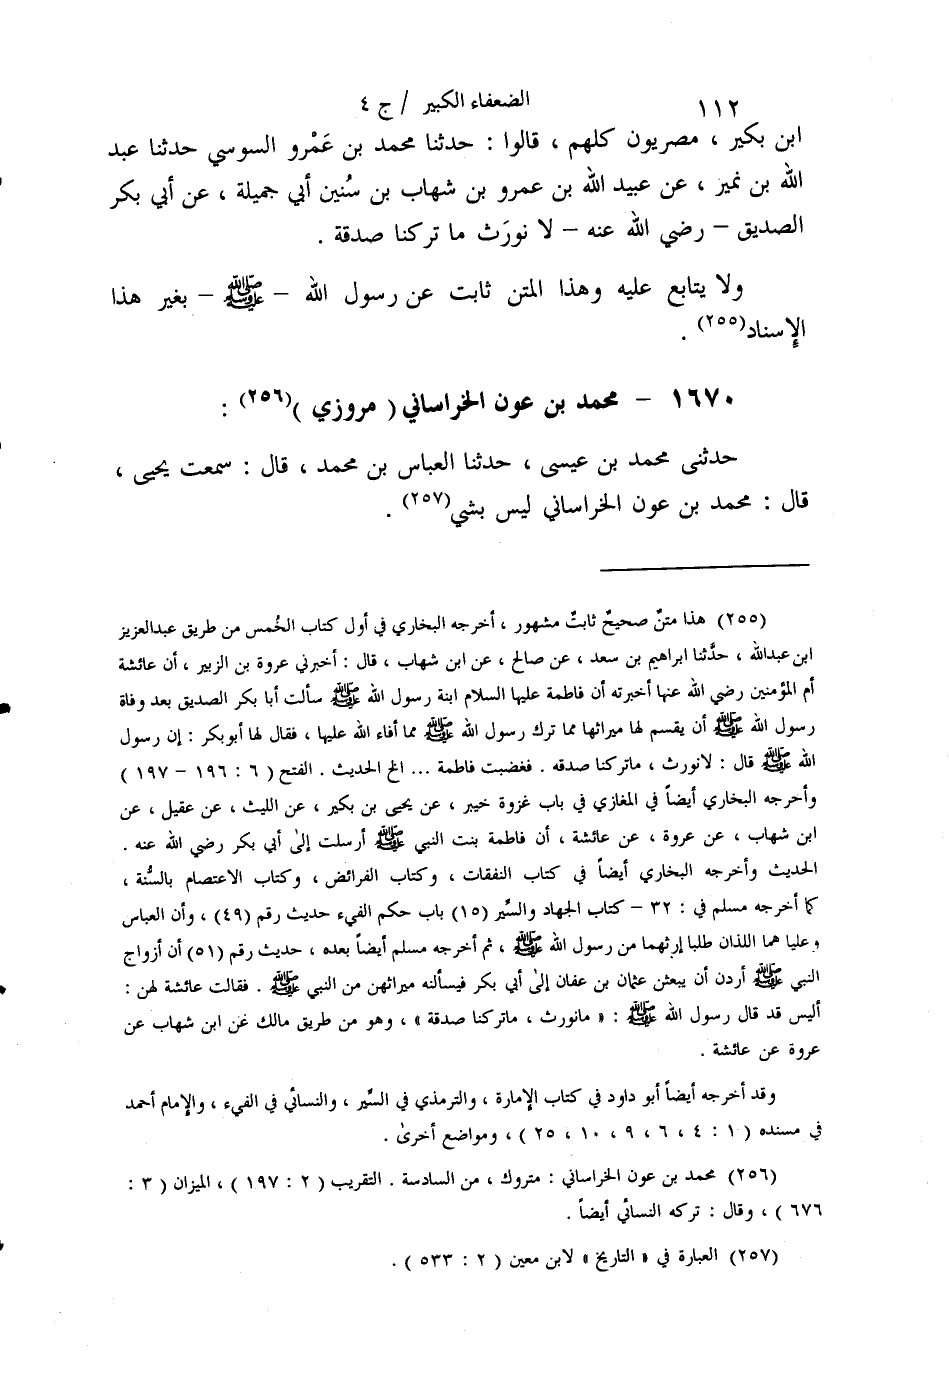 ١١٢ الضعفاء الكبير / ج ٤
ابن بكير ، مصريون كلهم ، قالوا : حدثنا محمد بن عَمْرو السوسي حدثنا عبد
الله بن نمير ، عن عبيد الله بن عمرو بن شهاب بن سُنين أبي جميلة ، عن أبي بكر
الصديق – رضي الله عنه – لا نورَث ما تركنا صدقة .
ولا يتابع عليه وهذا المتن ثابت عن رسول الله – ﷺ – بغير هذا
الإِسناد(٢٥٥) .
١٦٧٠ – محمد بن عون الخراساني ( مروزي )(٢٥٦) :
حدثنى محمد بن عيسى ، حدثنا العباس بن محمد ، قال : سمعت يحيى ،
قال : محمد بن عون الخراساني ليس بشي(٢٥٧) .
(٢٥٥) هذا متنٌ صحيحٌ ثابتٌ مشهور ، أخرجه البخاري في أول كتاب الخُمس من طريق عبدالعزيز
ابن عبدالله ، حدَّثنا ابراهيم بن سعد ، عن صالح ، عن ابن شهاب ، قال : أخبرني عروة بن الزبير ، أن عائشة
أم المؤمنين رضي الله عنها أخبرته أن فاطمة عليها السلام ابنة رسول الله ﷺ سألت أبا بكر الصديق بعد وفاة
رسول الله ﷺ أن يقسم لها ميراثها مما ترك رسول الله ﷺ مما أفاء الله عليها ، فقال لها أبوبكر : إن رسول
الله ﷺ قال : لانورث ، ماتركنا صدقه . فغضبت فاطمة ... الخ الحديث . الفتح ( ٦ : ١٩٦ – ١٩٧ )
وأحرجه البخاري أيضاً في المغازي في باب غزوة خيبر ، عن يحيى بن بكير ، عن الليث ، عن عقيل ، عن
ابن شهاب ، عن عروة ، عن عائشة ، أن فاطمة بنت النبي ﷺ أرسلت إلىٰ أبي بكر رضي الله عنه .
الحديث وأخرجه البخاري أيضاً في كتاب النفقات ، وكتاب الفرائض ، وكتاب الاعتصام بالسُّنة ،
كما أخرجه مسلم في : ٣٢ – كتاب الجهاد والسِّير (١٥) باب حكم الفيء حديث رقم (٤٩) ، وأن العباس
وعليا هما اللذان طلبا إرثهما من رسول الله ﷺ ، ثم أخرجه مسلم أيضاً بعده ، حديث رقم (٥١) أن أزواج
النبي ﷺ أردن أن يبعثن عثمان بن عفان إلىٰ أبي بكر فيسألنه ميراثهن من النبي ﷺ . فقالت عائشة لهن :
أليس قد قال رسول الله ﷺ : « مانورث ، ماتركنا صدقة » ، وهو من طريق مالك عن ابن شهاب عن
عروة عن عائشة .
وقد أخرجه أيضاً أبو داود في كتاب الإمارة ، والترمذي في السِّير ، والنسائي في الفيء ، والإمام أحمد
في مسنده ( ١ : ٤ ، ٦ ، ٩ ، ١٠ ، ٢٥ ) ، ومواضع أخرىٰ .
(٢٥٦) محمد بن عون الخراساني : متروك ، من السادسة . التقريب ( ٢ : ١٩٧ ) ، الميزان ( ٣ :
٦٧٦ ) ، وقال : تركه النسائي أيضاً .
(٢٥٧) العبارة في « التاريخ » لابن معين ( ٢ : ٥٣٣ ) .